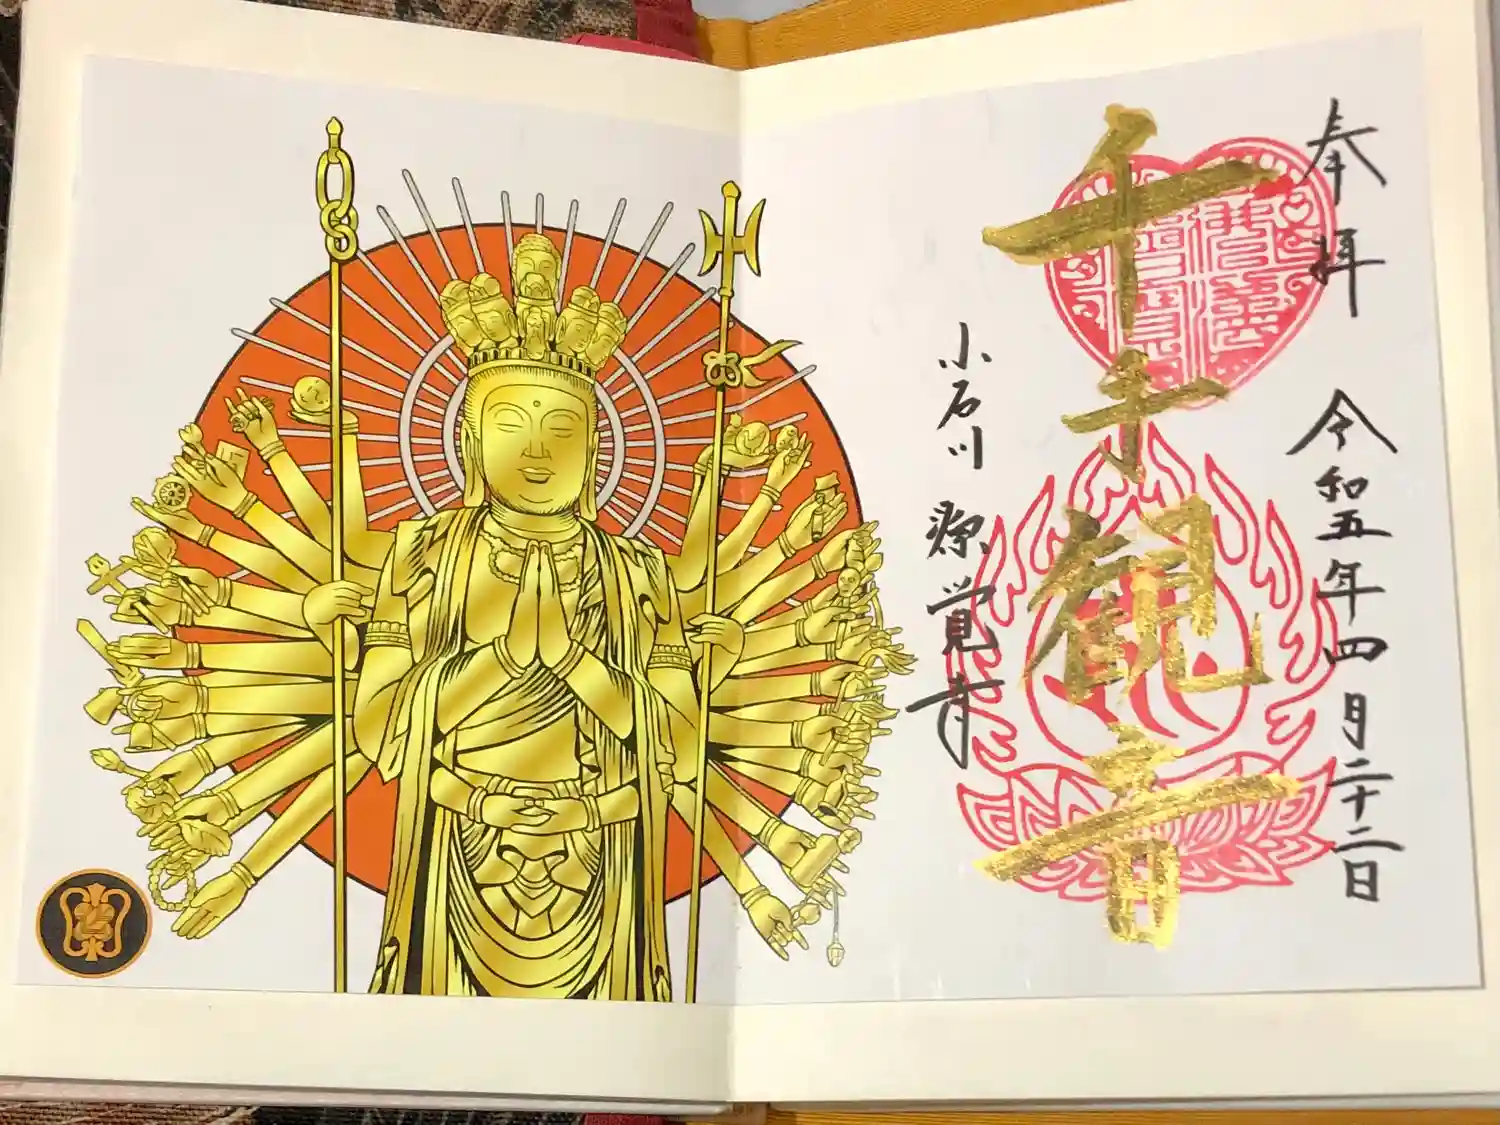 奉拝
令和五年四月二十二日
千手観音
小石川 源覚寺